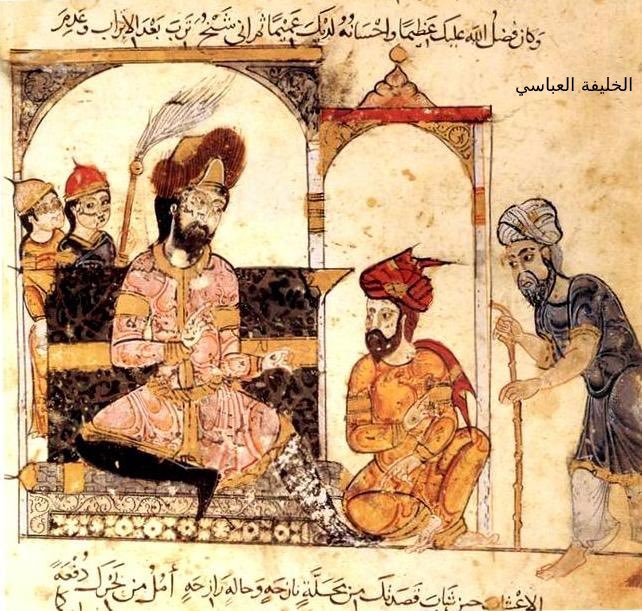 وكان فضل الله عليك عظيما واحسانه لديك عميما ثم اني شيخ ترب بعد الاتراب وعدم
الخليفة العباسي
الاعشاب حين شاب قصدتك من محلة نازحة وحالة رازحة أمل من بحرك دفعة